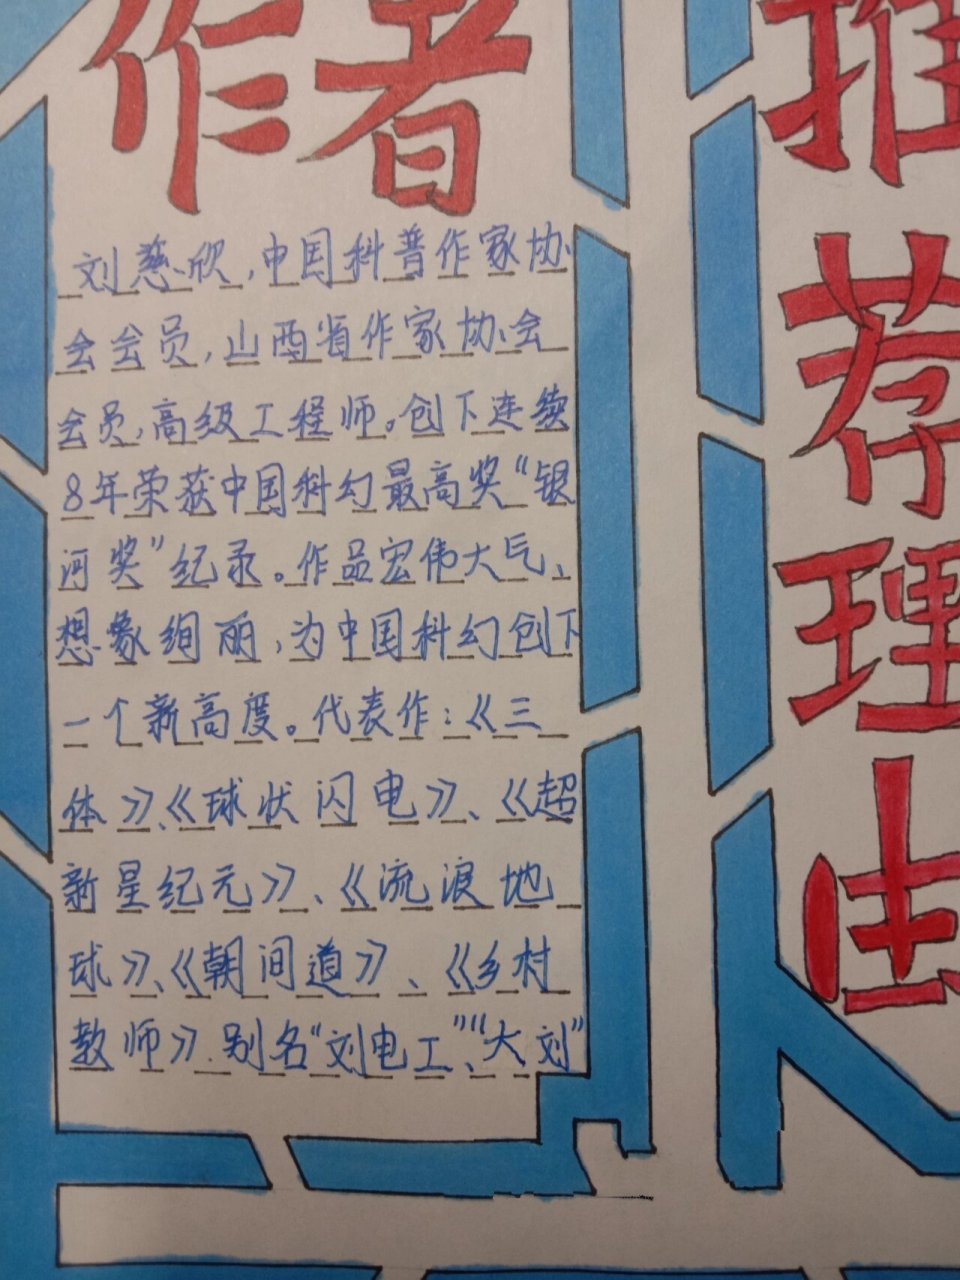 作者
刘慈欣,中国科普作家协
会会员,山西省作家协会
会员,高级工程师。创下连续
8年荣获中国科幻最高奖“银
河奖”纪录。作品宏伟大气、
想象绚丽,为中国科幻创下
一个新高度。代表作:《三
体》、《球状闪电》、《超
新星纪元》、《流浪地
球》、《朝间道》、《乡村
教师》.别名“刘电工”、“大刘”
推
荐
理
由